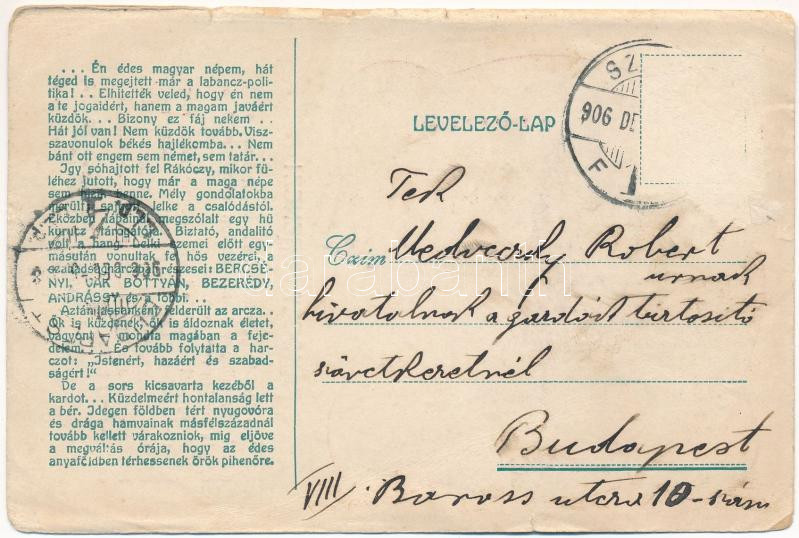 ... Én édes magyar népem, hát
téged is megejtett már a labancz-poli-
tika!.. Elhitették veled, hogy én nem
a te jogaidért, hanem a magam javáért
küzdök... Bizony ez fáj nekem...
Hát jól van! Nem küzdök tovább. Visz-
szavonulok békés hajlékomba... Nem
bánt ott engem sem német, sem tatár...
Igy sóhajtott fel Rákóczy, mikor fü-
léhez jutott, hogy már a maga népe
sem benne. Mély gondolatokba
merült lelke a csalódástól.
Eközben megszólalt egy hű
kurucz tárogatója. Biztató, andalító
volt a hang. Lelki szemei előtt egy-
másután vonultak hős vezérei, a
szabadságharcz részesei: BERCSÉ-
NYI, VAK BOTTYÁN, BEZERÉDY,
ANDRÁSSY és a többi...
Aztán lassanként felderült az arcza.
Ők is küzdenek, ők is áldoznak életet,
vagyont mondta magában a feje-
delem... És tovább folytatta a har-
czot: „Istenért, hazáért és szabad-
ságért!"
De a sors kicsavarta kezéből a
kardot... Küzdelmeért hontalanság lett
a bér. Idegen földben tért nyugovóra
és drága hamvainak másfélszázadnál
tovább kellett várakozniok, mig eljöve
a megváltás órája, hogy az édes
anyaföldben térhessenek örök pihenőre.
LEVELEZŐ-LAP
SZ
906 DE
F
Tek
Czim Medveczky Robert
urnak
hivatalnok a gazdák biztositó
szövetkezetnél
Budapest
VIII. Baross utcza 10-szám